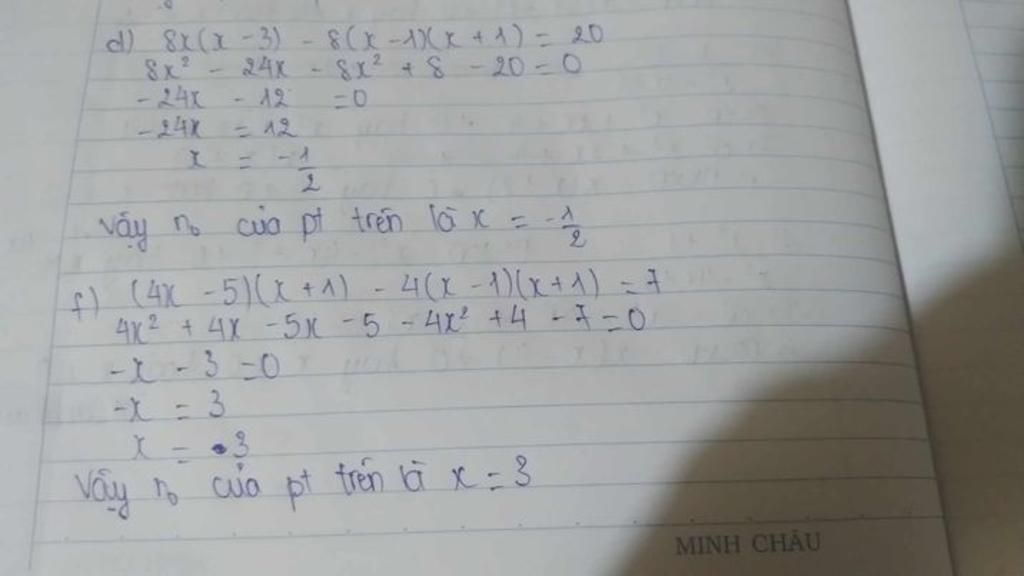 d) 8x(x - 3) - 8(x - 1)(x + 1) = 20
8x² - 24x - 8x² + 8 - 20 = 0
-24x - 12 = 0
-24x = 12
x = -1/2
Vậy n₀ của pt trên là x = -1/2
f) (4x - 5)(x + 1) - 4(x - 1)(x + 1) = 7
4x² + 4x - 5x - 5 - 4x² + 4 - 7 = 0
-x - 3 = 0
-x = 3
x = -3
Vậy n₀ của pt trên là x = 3
MINH CHÂU